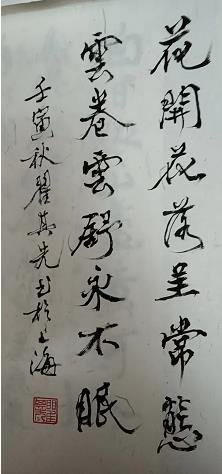 花開花落呈常態
雲卷雲舒永不眠
壬寅秋翟其先書於上海